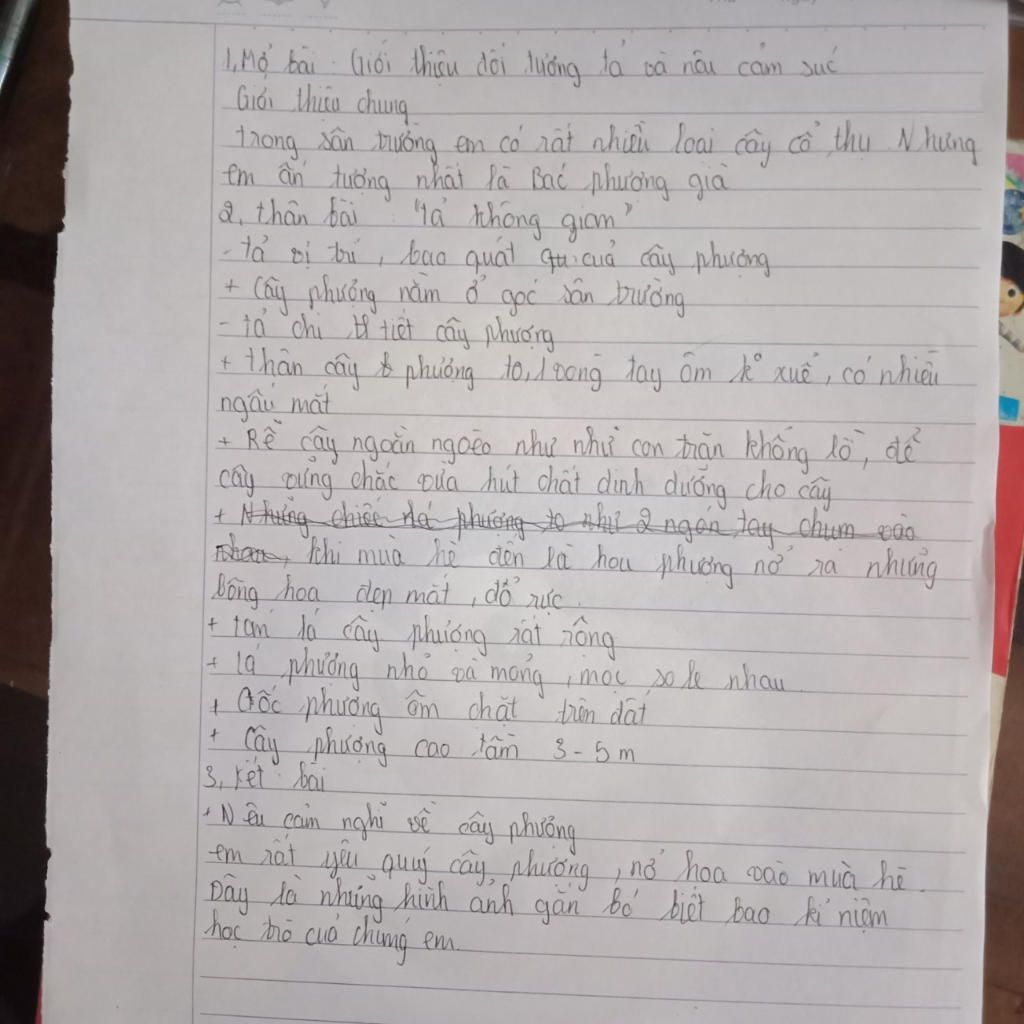 1, Mở bài: Giới thiệu đối tượng tả và nêu cảm xúc
Giới thiệu chung
trong sân trường em có rất nhiều loại cây cổ thụ Nhưng
em ấn tượng nhất là Bác phượng già
2, thân bài "tả không gian"
- tả vị trí, bao quát của cây phượng
+ Cây phượng nằm ở góc sân trường
- tả chi tiết cây phượng
+ thân cây phượng to, 1 vòng tay ôm k° xuể, có nhiều
ngấu mắt
+ Rễ cây ngoằn ngoèo như như con trăn khổng lồ, để
cây vững chắc vừa hút chất dinh dưỡng cho cây
+ Những chiếc lá phượng to như 2 ngón tay chụm vào
nhau, khi mùa hè đến là hoa phượng nở ra những
bông hoa đẹp mắt, đỏ rực.
+ tán lá cây phượng rất rộng
+ lá phượng nhỏ và mỏng, mọc so le nhau
+ Gốc phượng ôm chặt trên đất
+ Cây phượng cao tầm 3-5m
3, Kết bài
+ Nêu cảm nghĩ về cây phượng
em rất yêu quý cây phượng, nở hoa vào mùa hè.
Đây là những hình ảnh gắn bó biết bao kỉ niệm
học trò của chúng em.